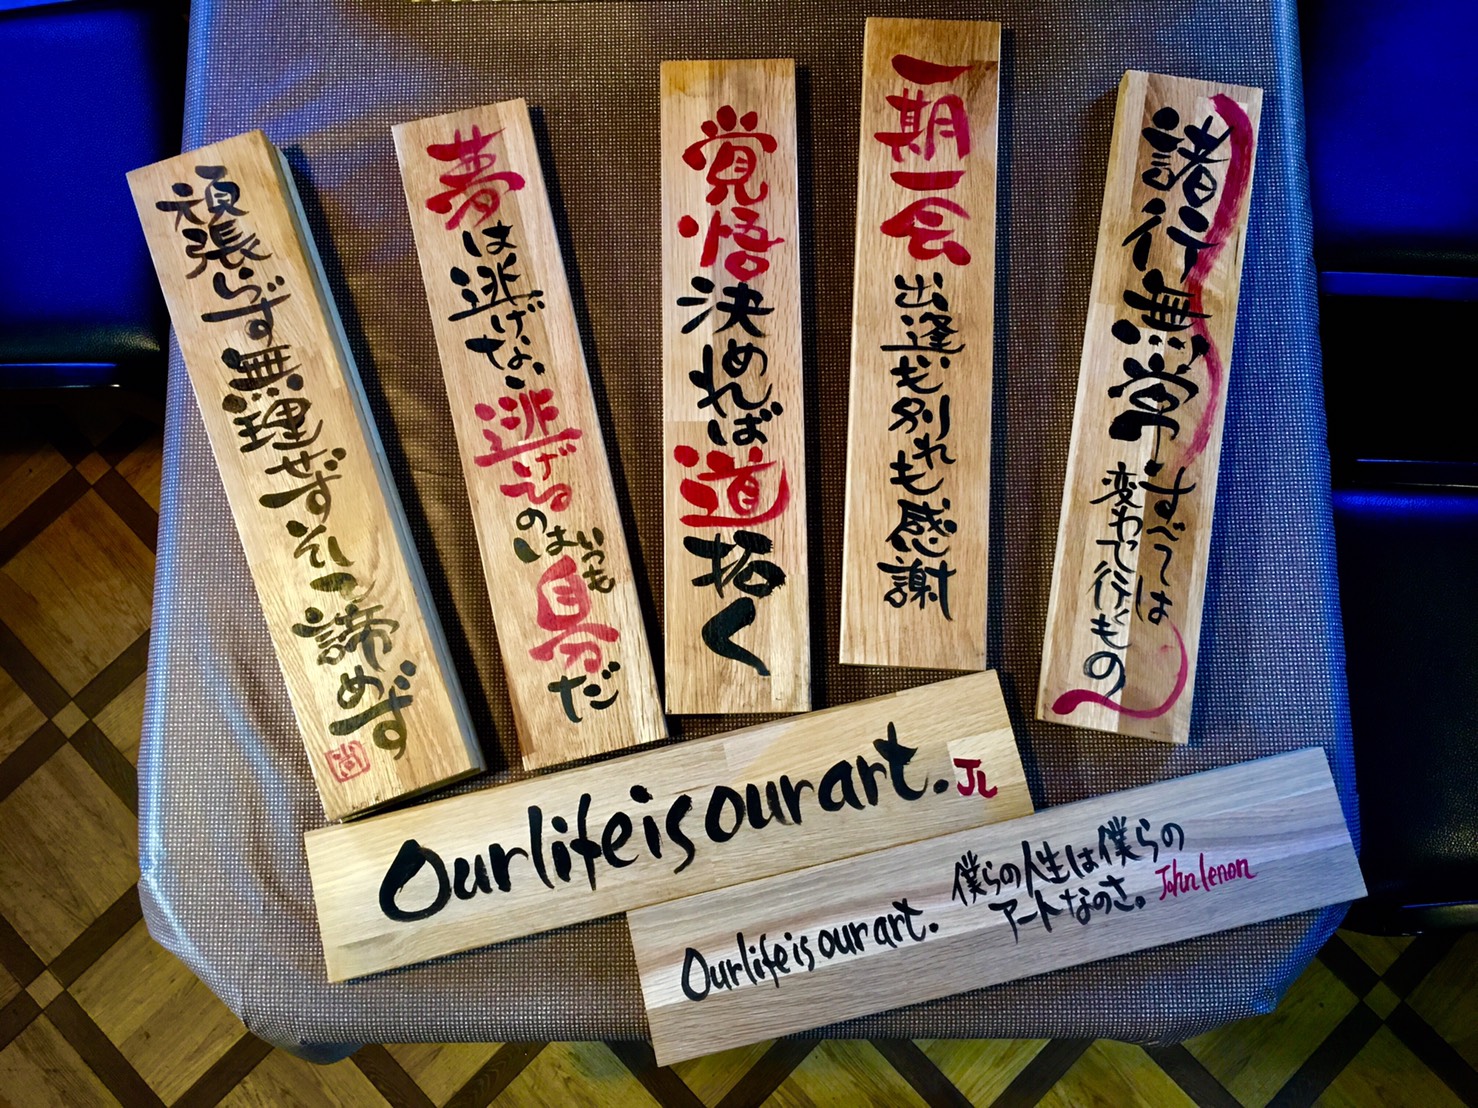 頑張らず無理せずそして諦めず
尚
夢は逃げない
逃げるのは
いつも
自分だ
覚悟決めれば道拓く
一期一会
出逢いも別れも感謝
諸行無常
すべては
変わって行くもの
Our life is our art. JL
Our life is our art.
僕らの人生は僕らの
アートなのさ。John lenon